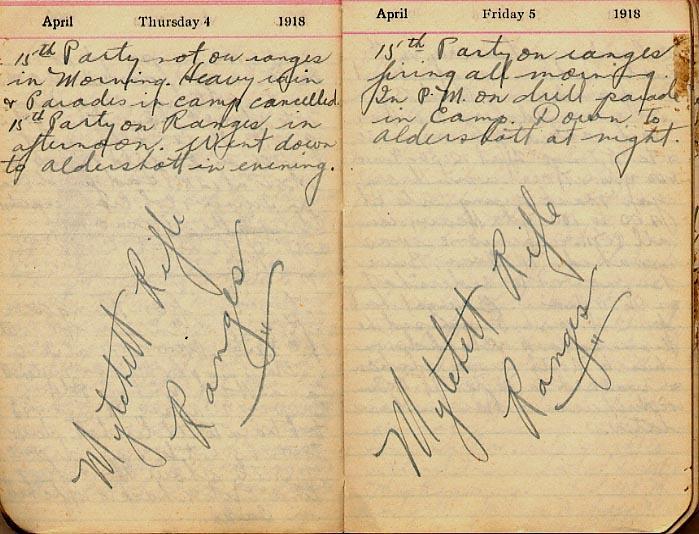 April Thursday 4 1918
15th Party not on ranges
in Morning. Heavy rain
& Parades in camp cancelled.
15th Party on Ranges in
afternoon. Went down
to aldershott in evening.
Mytchett Rifle
Ranges
April Friday 5 1918
15th Party on ranges
firing all morning.
In P.M. on drill parade
in Camp. Down to
aldershott at night.
Mytchett Rifle
Ranges